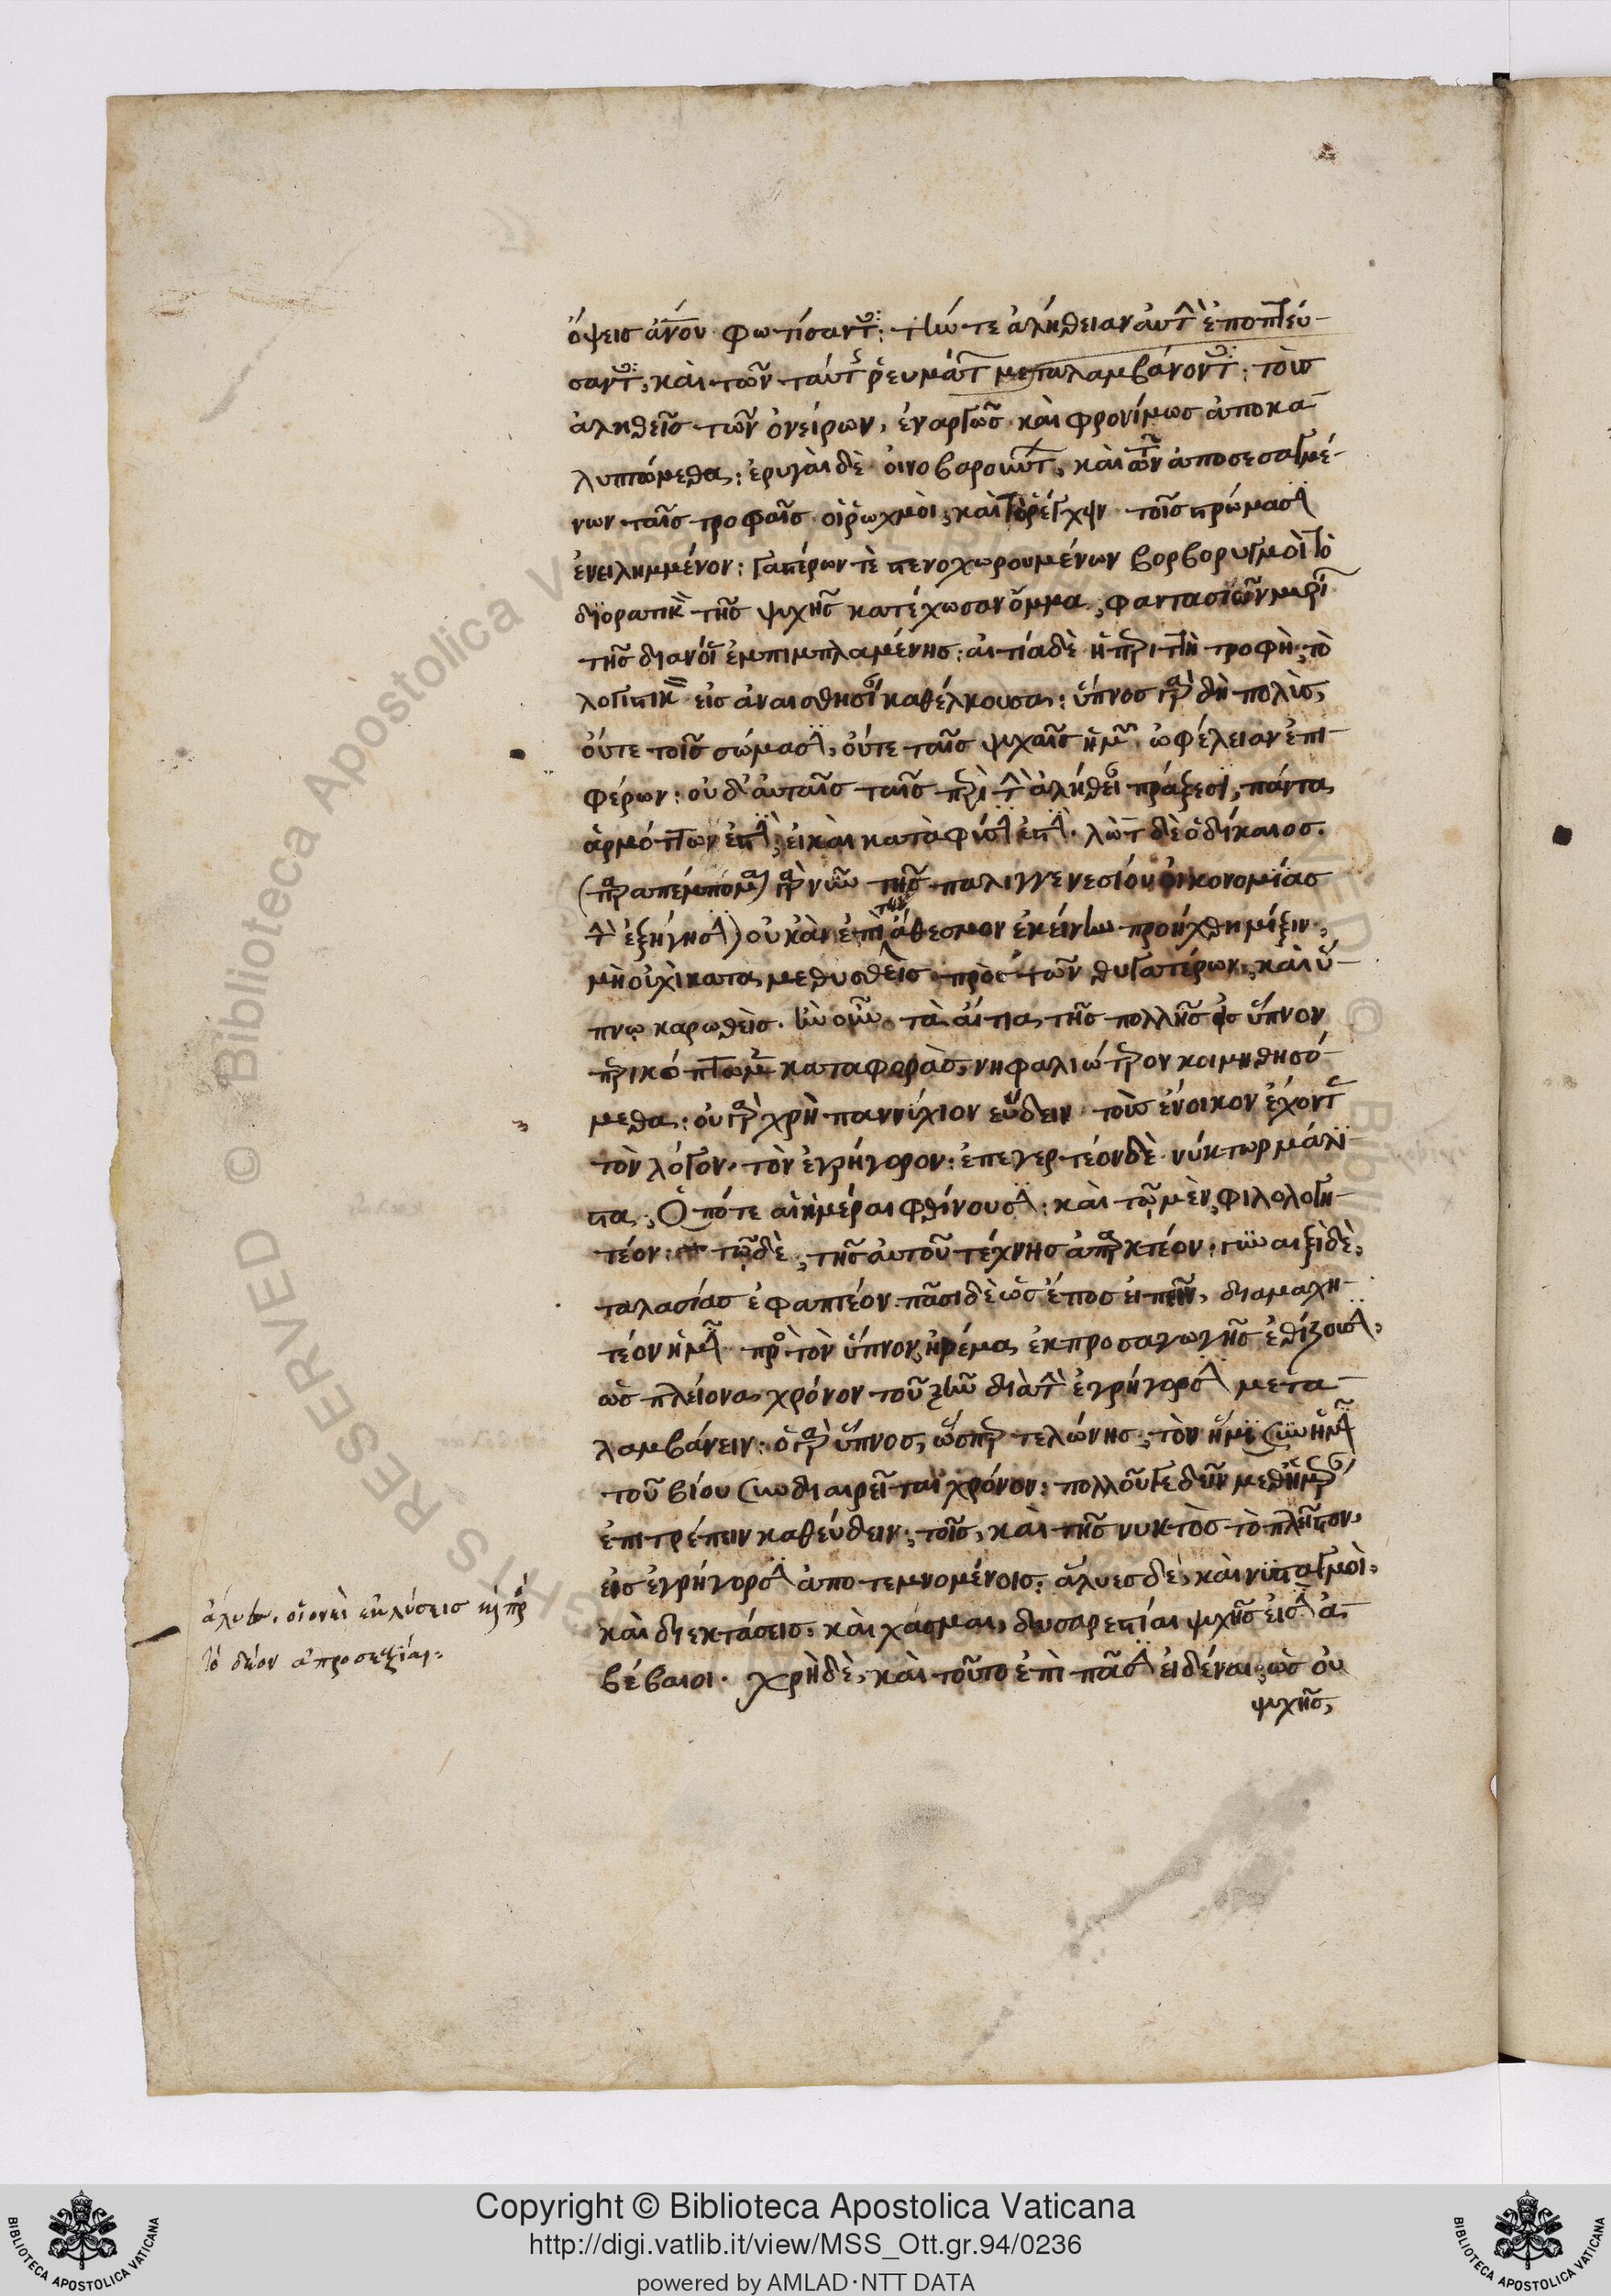 ὄψεις ἀνον φωτίσαντος· τήν τε ἀλήθειαν αὐτὴν ἐποπτεύ-
σαντος, καὶ τῶν ταύτης ῥευμάτων μεταλαμβάνοντος· τοὺς
ἀληθεῖς τῶν ὀνείρων, ἐναργῶς καὶ φρονίμως ἀποκα-
λυπτώμεθα· ἐρυγαὶ δὲ οἰνοβαρούντων, καὶ τῶν ἀποσεσαγμέ-
νων ταῖς τροφαῖς οἱ ῥωχμοὶ, καὶ τὸ ῥέγχειν τοῖς στρώμασιν
ἐνειλημμένον· γαστέρων τὲ στενοχωρουμένων βορβορυγμοὶ τὸ
διορατικὸν τῆς ψυχῆς κατέχωσαν ὄμμα, φαντασιῶν μυρίων
τῆς διανοίας ἐμπιμπλαμένης· αἰτία δὲ ἡ περιττὴ τροφὴ, τὸ
λογιστικὸν εἰς ἀναισθησίαν καθέλκουσα· ὕπνος γὰρ δὴ πολὺς,
οὔτε τοῖς σώμασιν, οὔτε ταῖς ψυχαῖς ἡμῶν ὠφέλειαν ἐπι-
φέρων· οὐδ' αὐταῖς ταῖς περὶ τὴν ἀλήθειαν πράξεσιν, πάντα
ἁρμόττων ἐστὶν, εἰ καὶ κατὰ φύσιν ἐστίν. λὼτ δὲ ὁ δίκαιος.
(παραπέμπομαι γὰρ νῦν τῆς παλιγγενεσίου οἰκονομίας
τὴν ἐξήγησιν) οὐκ ἂν ἐπὶ τὴν ἄθεσμον ἐκείνην προήχθη μίξιν,
μὴ οὐχὶ καταμεθυσθεὶς πρὸς τῶν θυγατέρων, καὶ ὕ-
πνῳ καρωθείς. ἢν οὖν τὰ αἴτια τῆς πολλῆς εἰς ὕπνον
περικόπτωμεν καταφορὰς, νηφαλιώτερον κοιμηθησό-
μεθα· οὐ γὰρ χρὴ παννύχιον εὕδειν τοὺς ἔνοικον ἔχοντας
τὸν λόγον, τὸν ἐγρήγορον· ἐπεγερτέον δὲ νύκτωρ μάλι-
στα, Ὁπότε αἱ ἡμέραι φθίνουσιν· καὶ τῷ μὲν, φιλολογη-
τέον· τῷ δὲ, τῆς αὐτοῦ τέχνης ἀπαρκτέον· γυναιξὶ δὲ,
ταλασίας ἐφαπτέον. πᾶσι δὲ ὡς ἔπος εἰπεῖν, διαμαχη-
τέον ἡμῖν πρὸς τὸν ὕπνον, ἠρέμα ἐκ προσαγωγῆς ἐθίζουσιν,
ὡς πλείονα χρόνον τοῦ ζῆν διὰ τὴν ἐγρήγορσιν μετα-
λαμβάνειν· ὁ γὰρ ὕπνος, ὥσπερ τελώνης, τὸν ἥμισυν ἡμῖν
τοῦ βίου συνδιαιρεῖται χρόνον· πολλοῦ γε δεῖν μεθ' ἡμέραν
ἐπιτρέπειν καθεύδειν, τοῖς, καὶ τῆς νυκτὸς τὸ πλεῖστον
εἰς ἐγρήγορσιν ἀποτεμνομένοις· ἄλυες δὲ, καὶ νυσταγμοὶ,
καὶ διεκτάσεις, καὶ χάσμαι, δυσαρεστίαι ψυχῆς εἰσὶν ἀ-
βέβαιοι. χρὴ δὲ, καὶ τοῦτο ἐπὶ πᾶσιν εἰδέναι, ὡς οὐ
ψυχῆς,
ἄλυες, οἱονεὶ ἐκλύσεις πρὸς
τὸ δέον ἀπροσεξίαι.
Copyright © Biblioteca Apostolica Vaticana
http://digi.vatlib.it/view/MSS_Ott.gr.94/0236
powered by AMLAD·NTT DATA
BIBLIOTECA APOSTOLICA VATICANA
BIBLIOTECA APOSTOLICA VATICANA